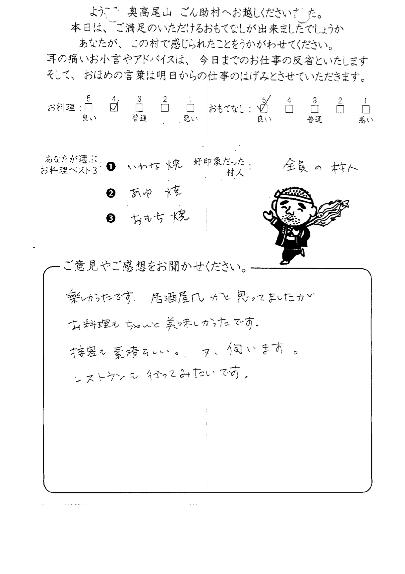 ようこそ 奥高尾山 ごん助村へお越しくださいました。
本日は、ご満足のいただけるおもてなしが出来ましたでしょうか
あなたが、この村で感じられたことをうかがわせてください。
耳の痛いお小言やアドバイスは、今日までのお仕事の反省といたします
そして、おほめの言葉は明日からの仕事のはげみとさせていただきます。
お料理: 5 4 3 2 1 おもてなし: 5 4 3 2 1
良い 普通 悪い 良い 普通 悪い
あなたが選ぶ お料理ベスト3 ❶ いわな焼 好印象だった 村人 全員の村人
❷ あゆ 焼
❸ おもち焼
ご意見やご感想をお聞かせください。
楽しかったです。居酒屋風かと思ってましたが
お料理もちゃんと美味しかったです。
接客も素晴らしい。又、伺います。
レストランも行ってみたいです。